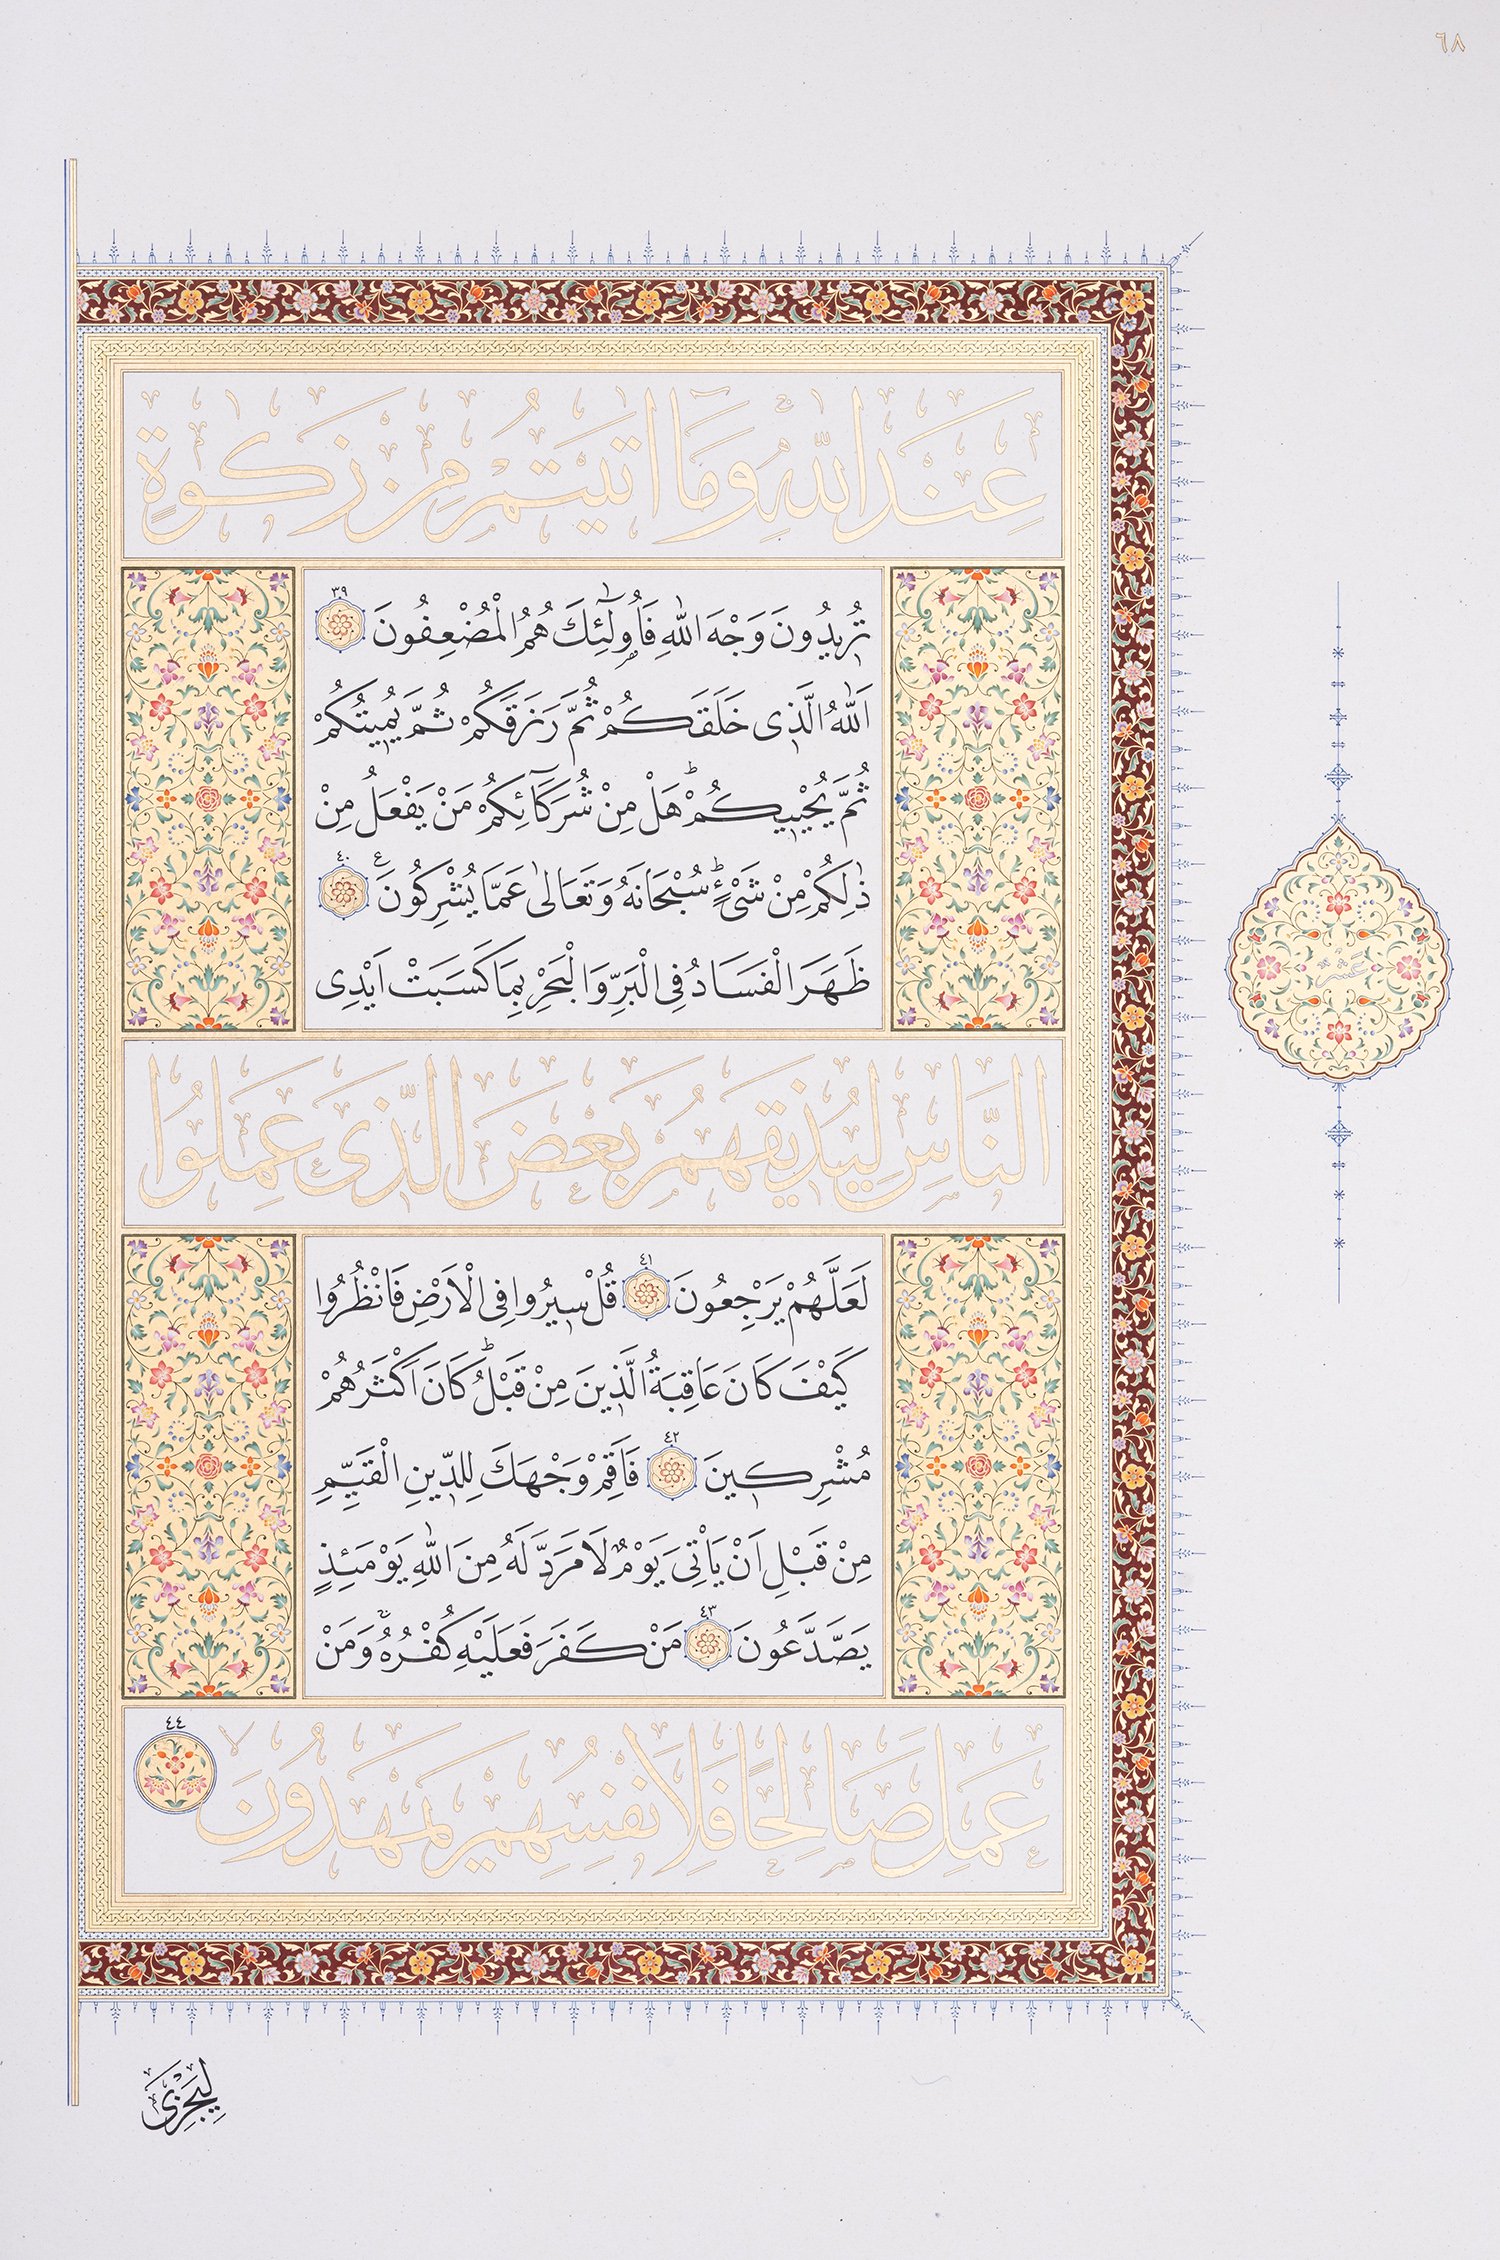 ٦٨
عِنْدَ اللّٰهِ وَمَٓا اٰتَيْتُمْ مِنْ زَكٰوةٍ
تُرٖيدُونَ وَجْهَ اللّٰهِ فَاُو۬لٰٓئِكَ هُمُ الْمُضْعِفُونَ ٣٩
اَللّٰهُ الَّذٖى خَلَقَكُمْ ثُمَّ رَزَقَكُمْ ثُمَّ يُمٖيتُكُمْ
ثُمَّ يُحْيٖيكُمْؕ هَلْ مِنْ شُرَكَٓائِكُمْ مَنْ يَفْعَلُ مِنْ
ذٰلِكُمْ مِنْ شَىْءٍؕ سُبْحَانَهُ وَتَعَالٰى عَمَّا يُشْرِكُونَ ع ٤٠
ظَهَرَ الْفَسَادُ فِى الْبَرِّ وَالْبَحْرِ بِمَا كَسَبَتْ اَيْدِى
النَّاسِ لِيُذٖيقَهُمْ بَعْضَ الَّذٖى عَمِلُوا
لَعَلَّهُمْ يَرْجِعُونَ ٤١ قُلْ سٖيرُوا فِى الْاَرْضِ فَانْظُرُوا
كَيْفَ كَانَ عَاقِبَةُ الَّذٖينَ مِنْ قَبْلُؕ كَانَ اَكْثَرُهُمْ
مُشْرِكٖينَ ٤٢ فَاَقِمْ وَجْهَكَ لِلدّٖينِ الْقَيِّمِ
مِنْ قَبْلِ اَنْ يَاْتِىَ يَوْمٌ لَا مَرَدَّ لَهُ مِنَ اللّٰهِ يَوْمَئِذٍ
يَصَّدَّعُونَ ٤٣ مَنْ كَفَرَ فَعَلَيْهِ كُفْرُهُۚ وَمَنْ
عَمِلَ صَالِحًا فَلِاَنْفُسِهِمْ يَمْهَدُونَۙ ٤٤
عشر
لِيَجْزِىَ